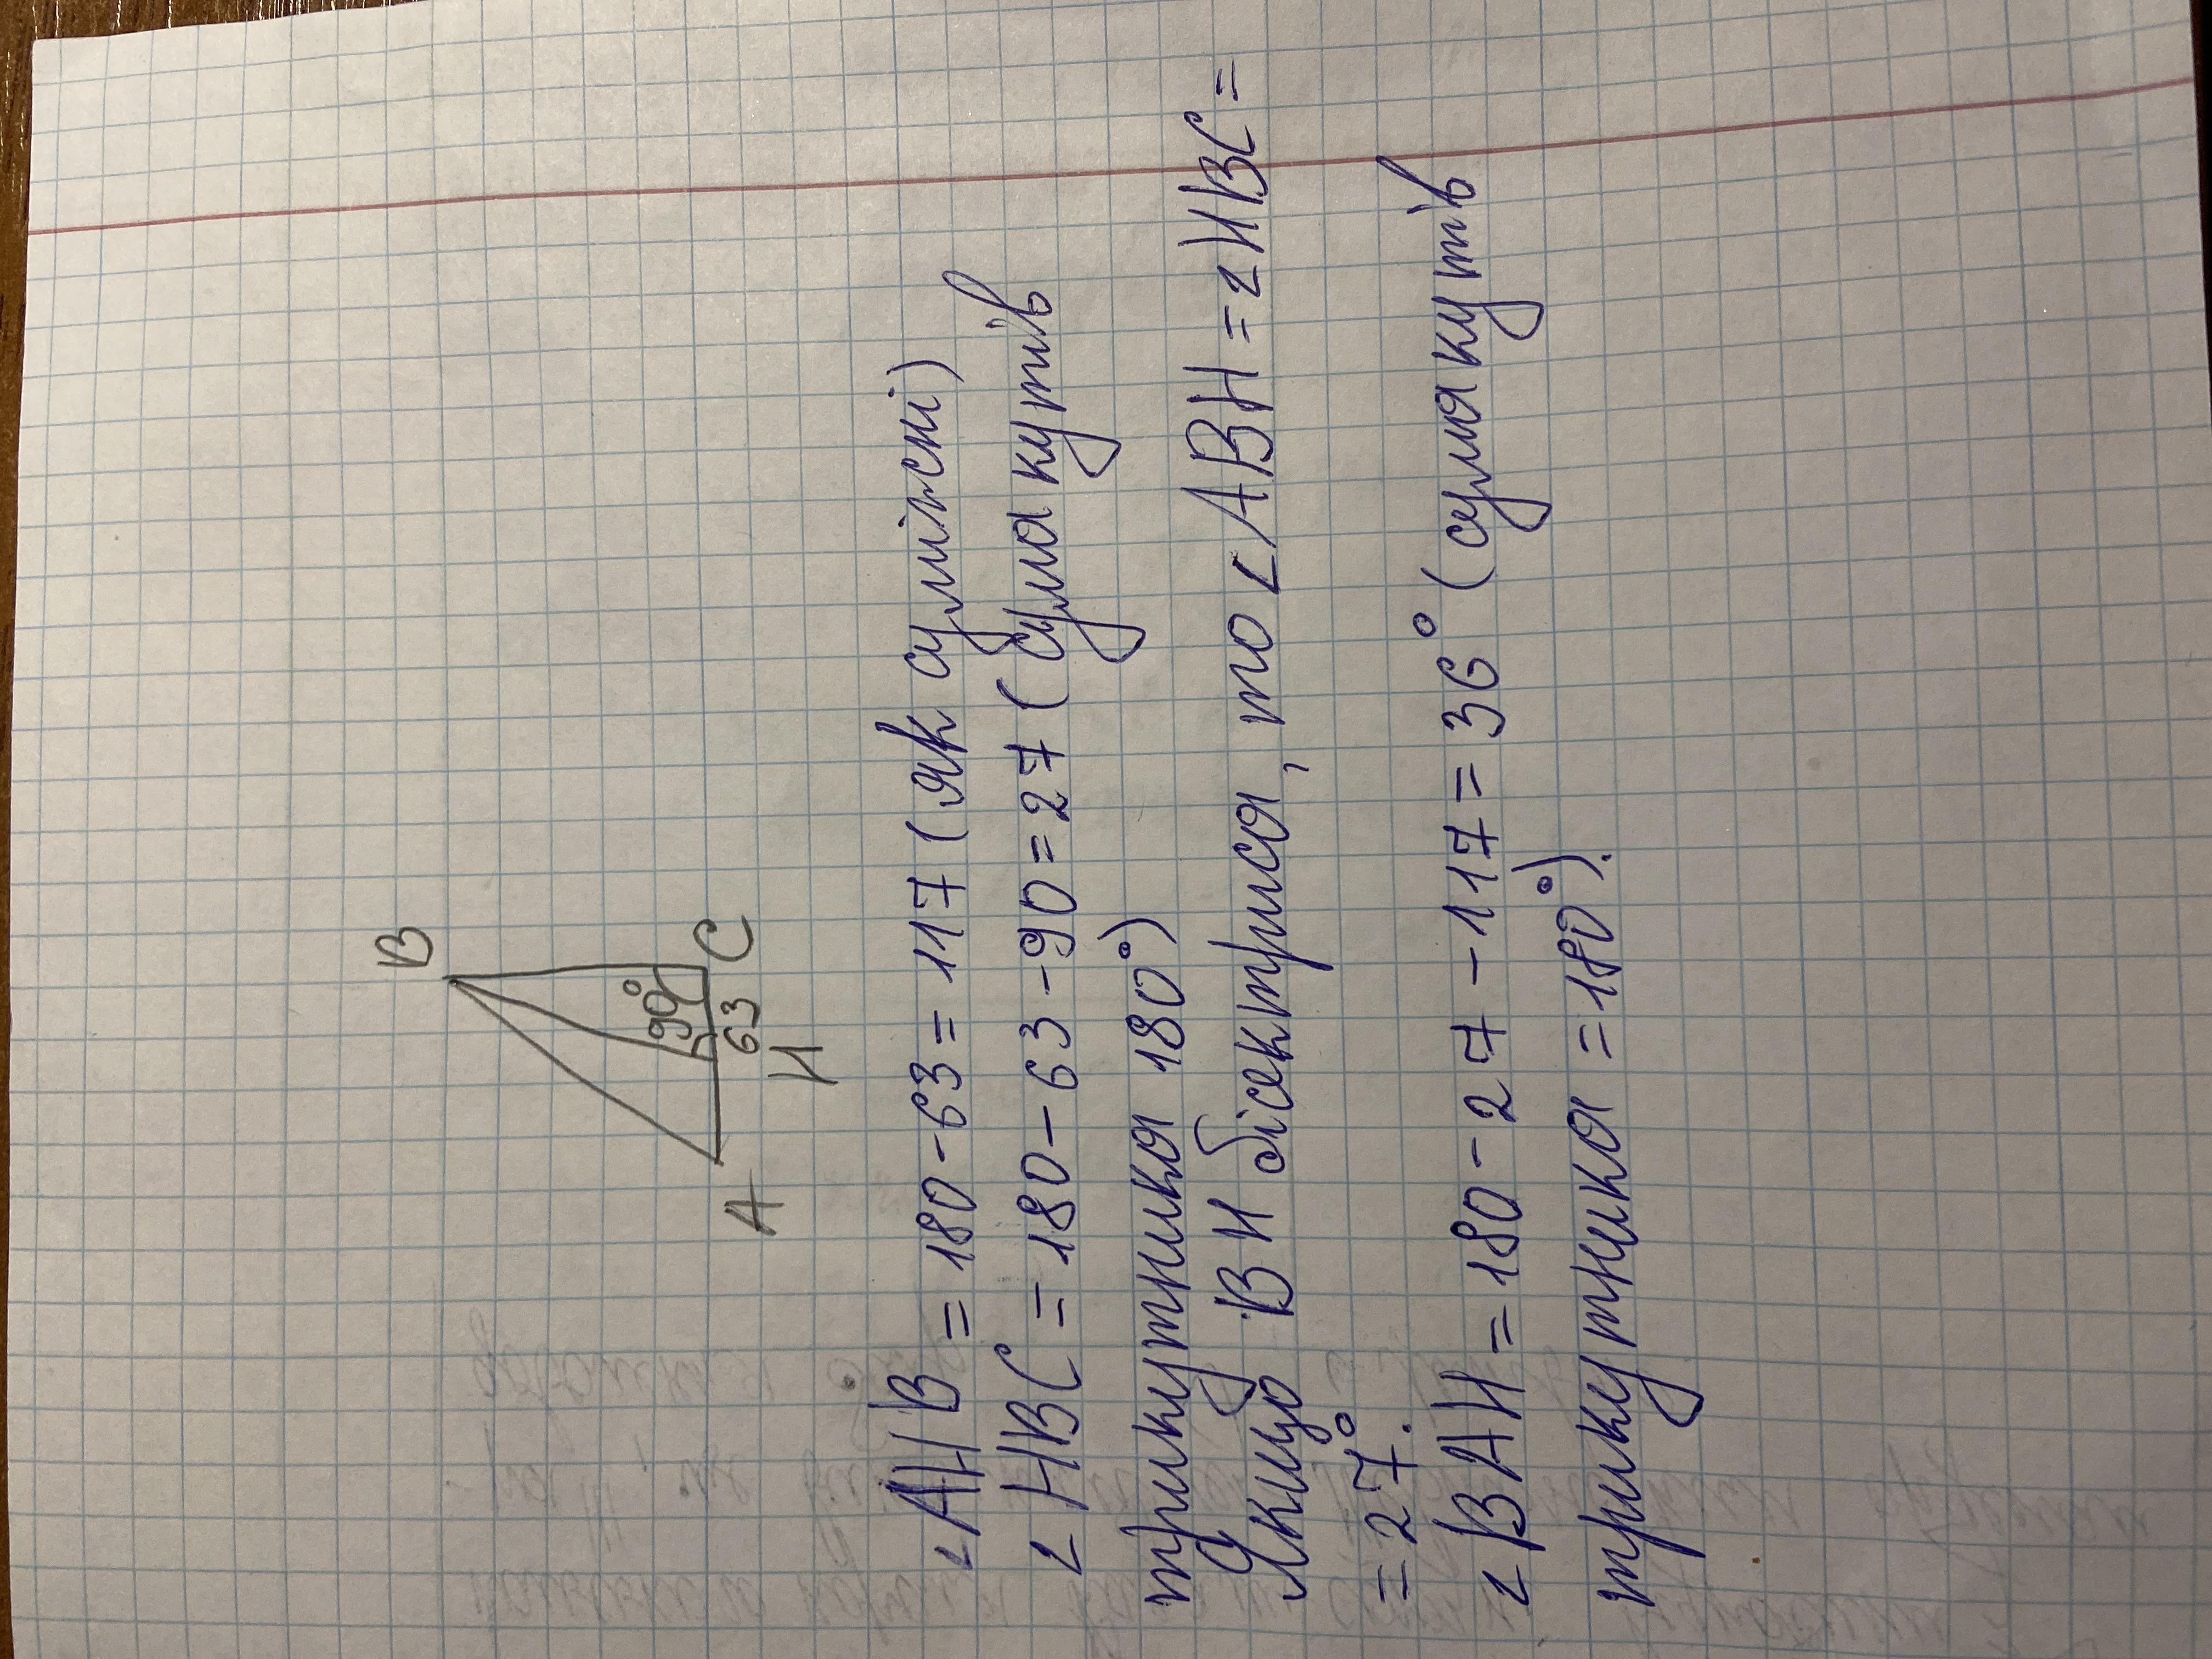 B
90°
A
63
C
H
∠AHB = 180-63 = 117 (як суміжні)
∠HBC = 180-63-90=27 (сума кутів
трикутника 180°)
Якщо BH бісектриса, то ∠ABH = ∠HBC =
= 27°.
∠BAH = 180-27-117=36° (сума кутів
трикутника =180°).